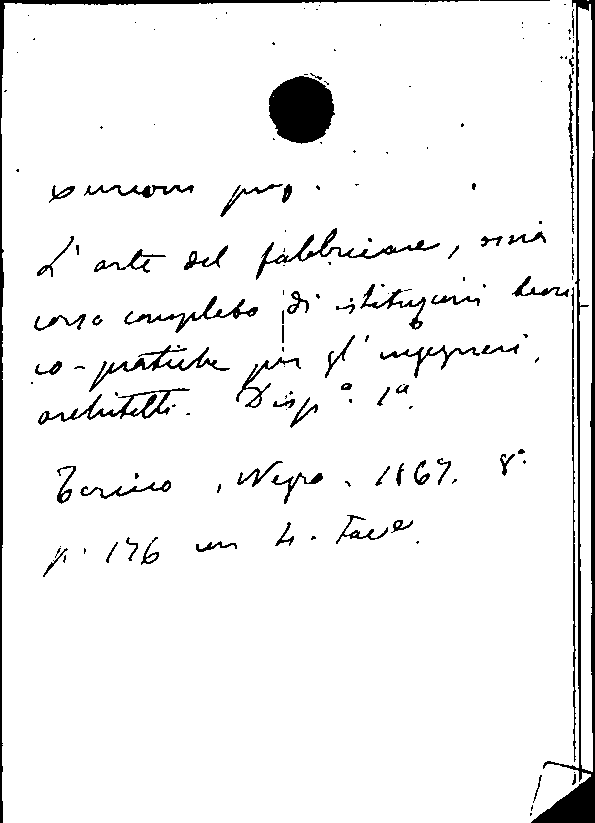 Curioni prof.
L'arte del fabbricare, ossia
corso completo di istituzioni teori
co-pratiche per gl'ingegneri,
architetti. Disp.ª 1ª.
Torino, Negro. 1867. 8°.
p. 176 con 4. Tavole.